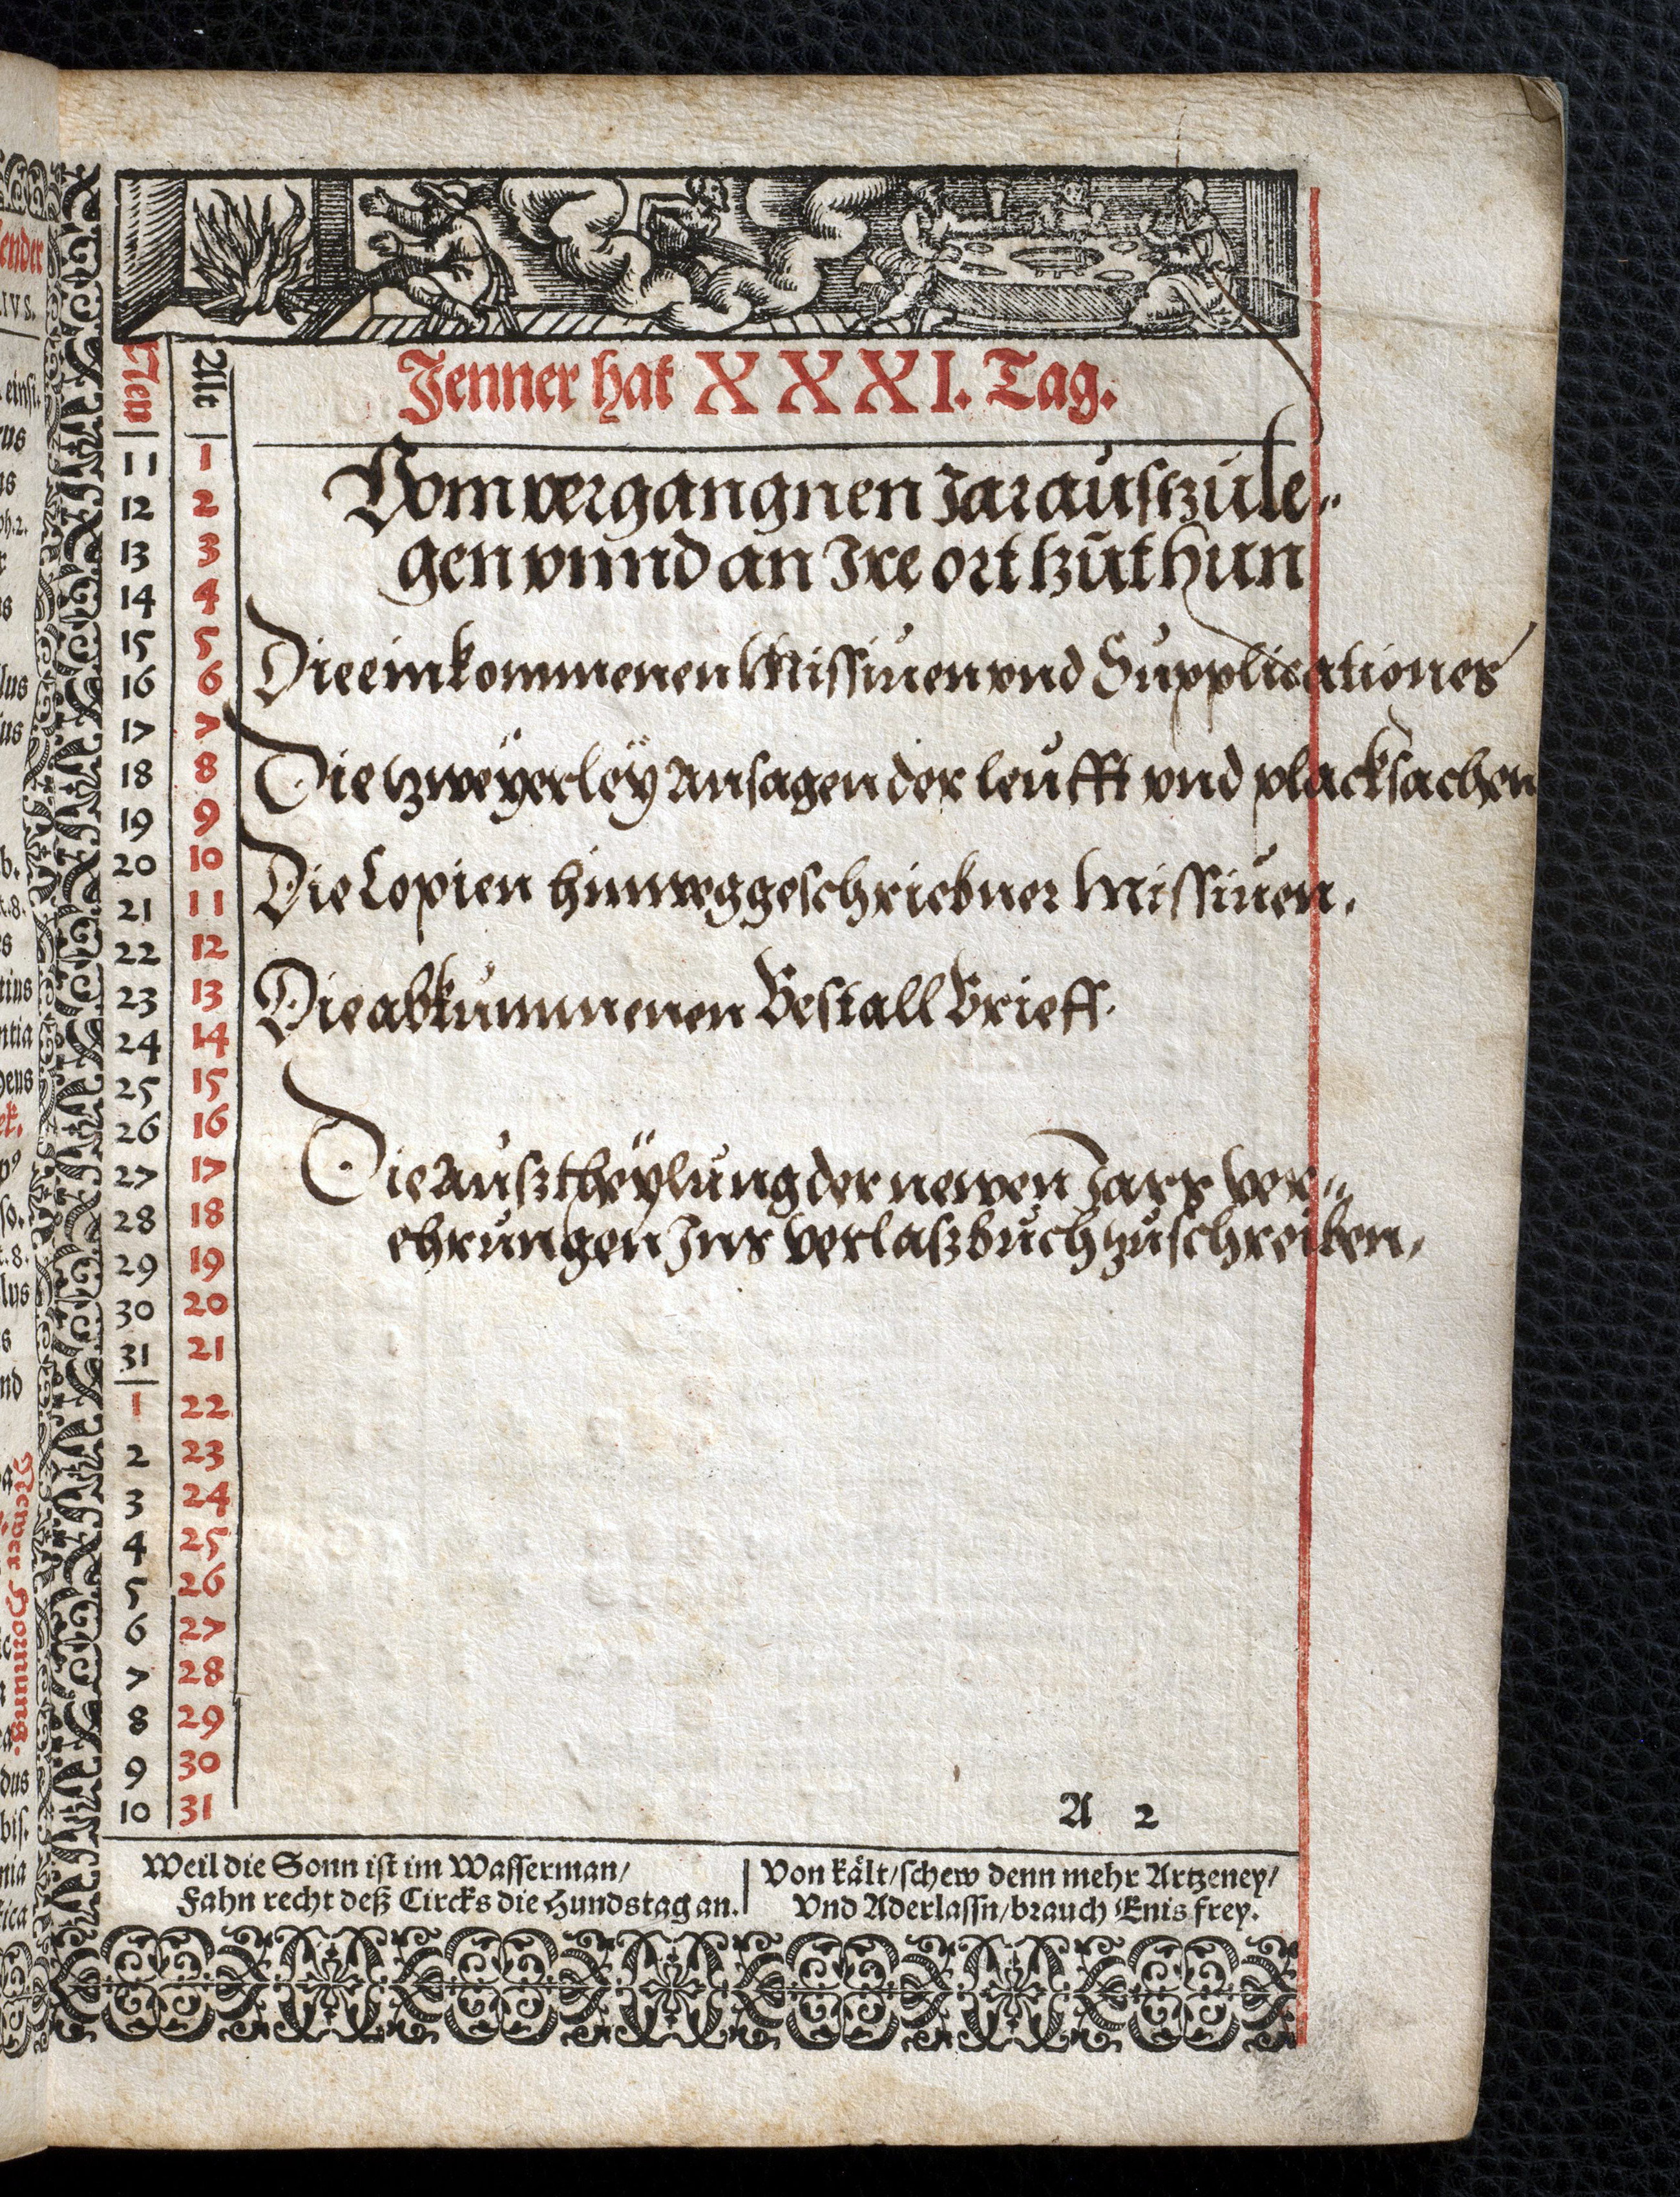 Jenner hat XXXI. Tag.
New | Alt
11 1
Vom vergangnen Jar austzule„
12 2
13 3
gen vnnd an Ire ort tzuthun
14 4
15 5
16 6
Die einkommenen Missiuen vnd Supplicationes
17 7
18 8
Die tzweÿerleÿ Ansagen der leufft vnd placksachen
19 9
20 10
21 11
Die Copien hinweggeschriebner Missiuen.
22 12
23 13
Die abkummenen Bestall Brieff.
24 14
25 15
26 16
27 17
Die Ausztheÿlung der newen Jars Ver„
28 18
29 19
ehrungen Ins Verlaszbuch zuschreiben,
30 20
31 21
1 22
2 23
3 24
4 25
5 26
6 27
7 28
8 29
9 30
10 31
A 2
Weil die Sonn ist im Wasserman/
Fahn recht deß Circks die Hundstag an.
Von kält/schew denn mehr Artzeney/
Vnd Aderlassn/brauch Enis frey.